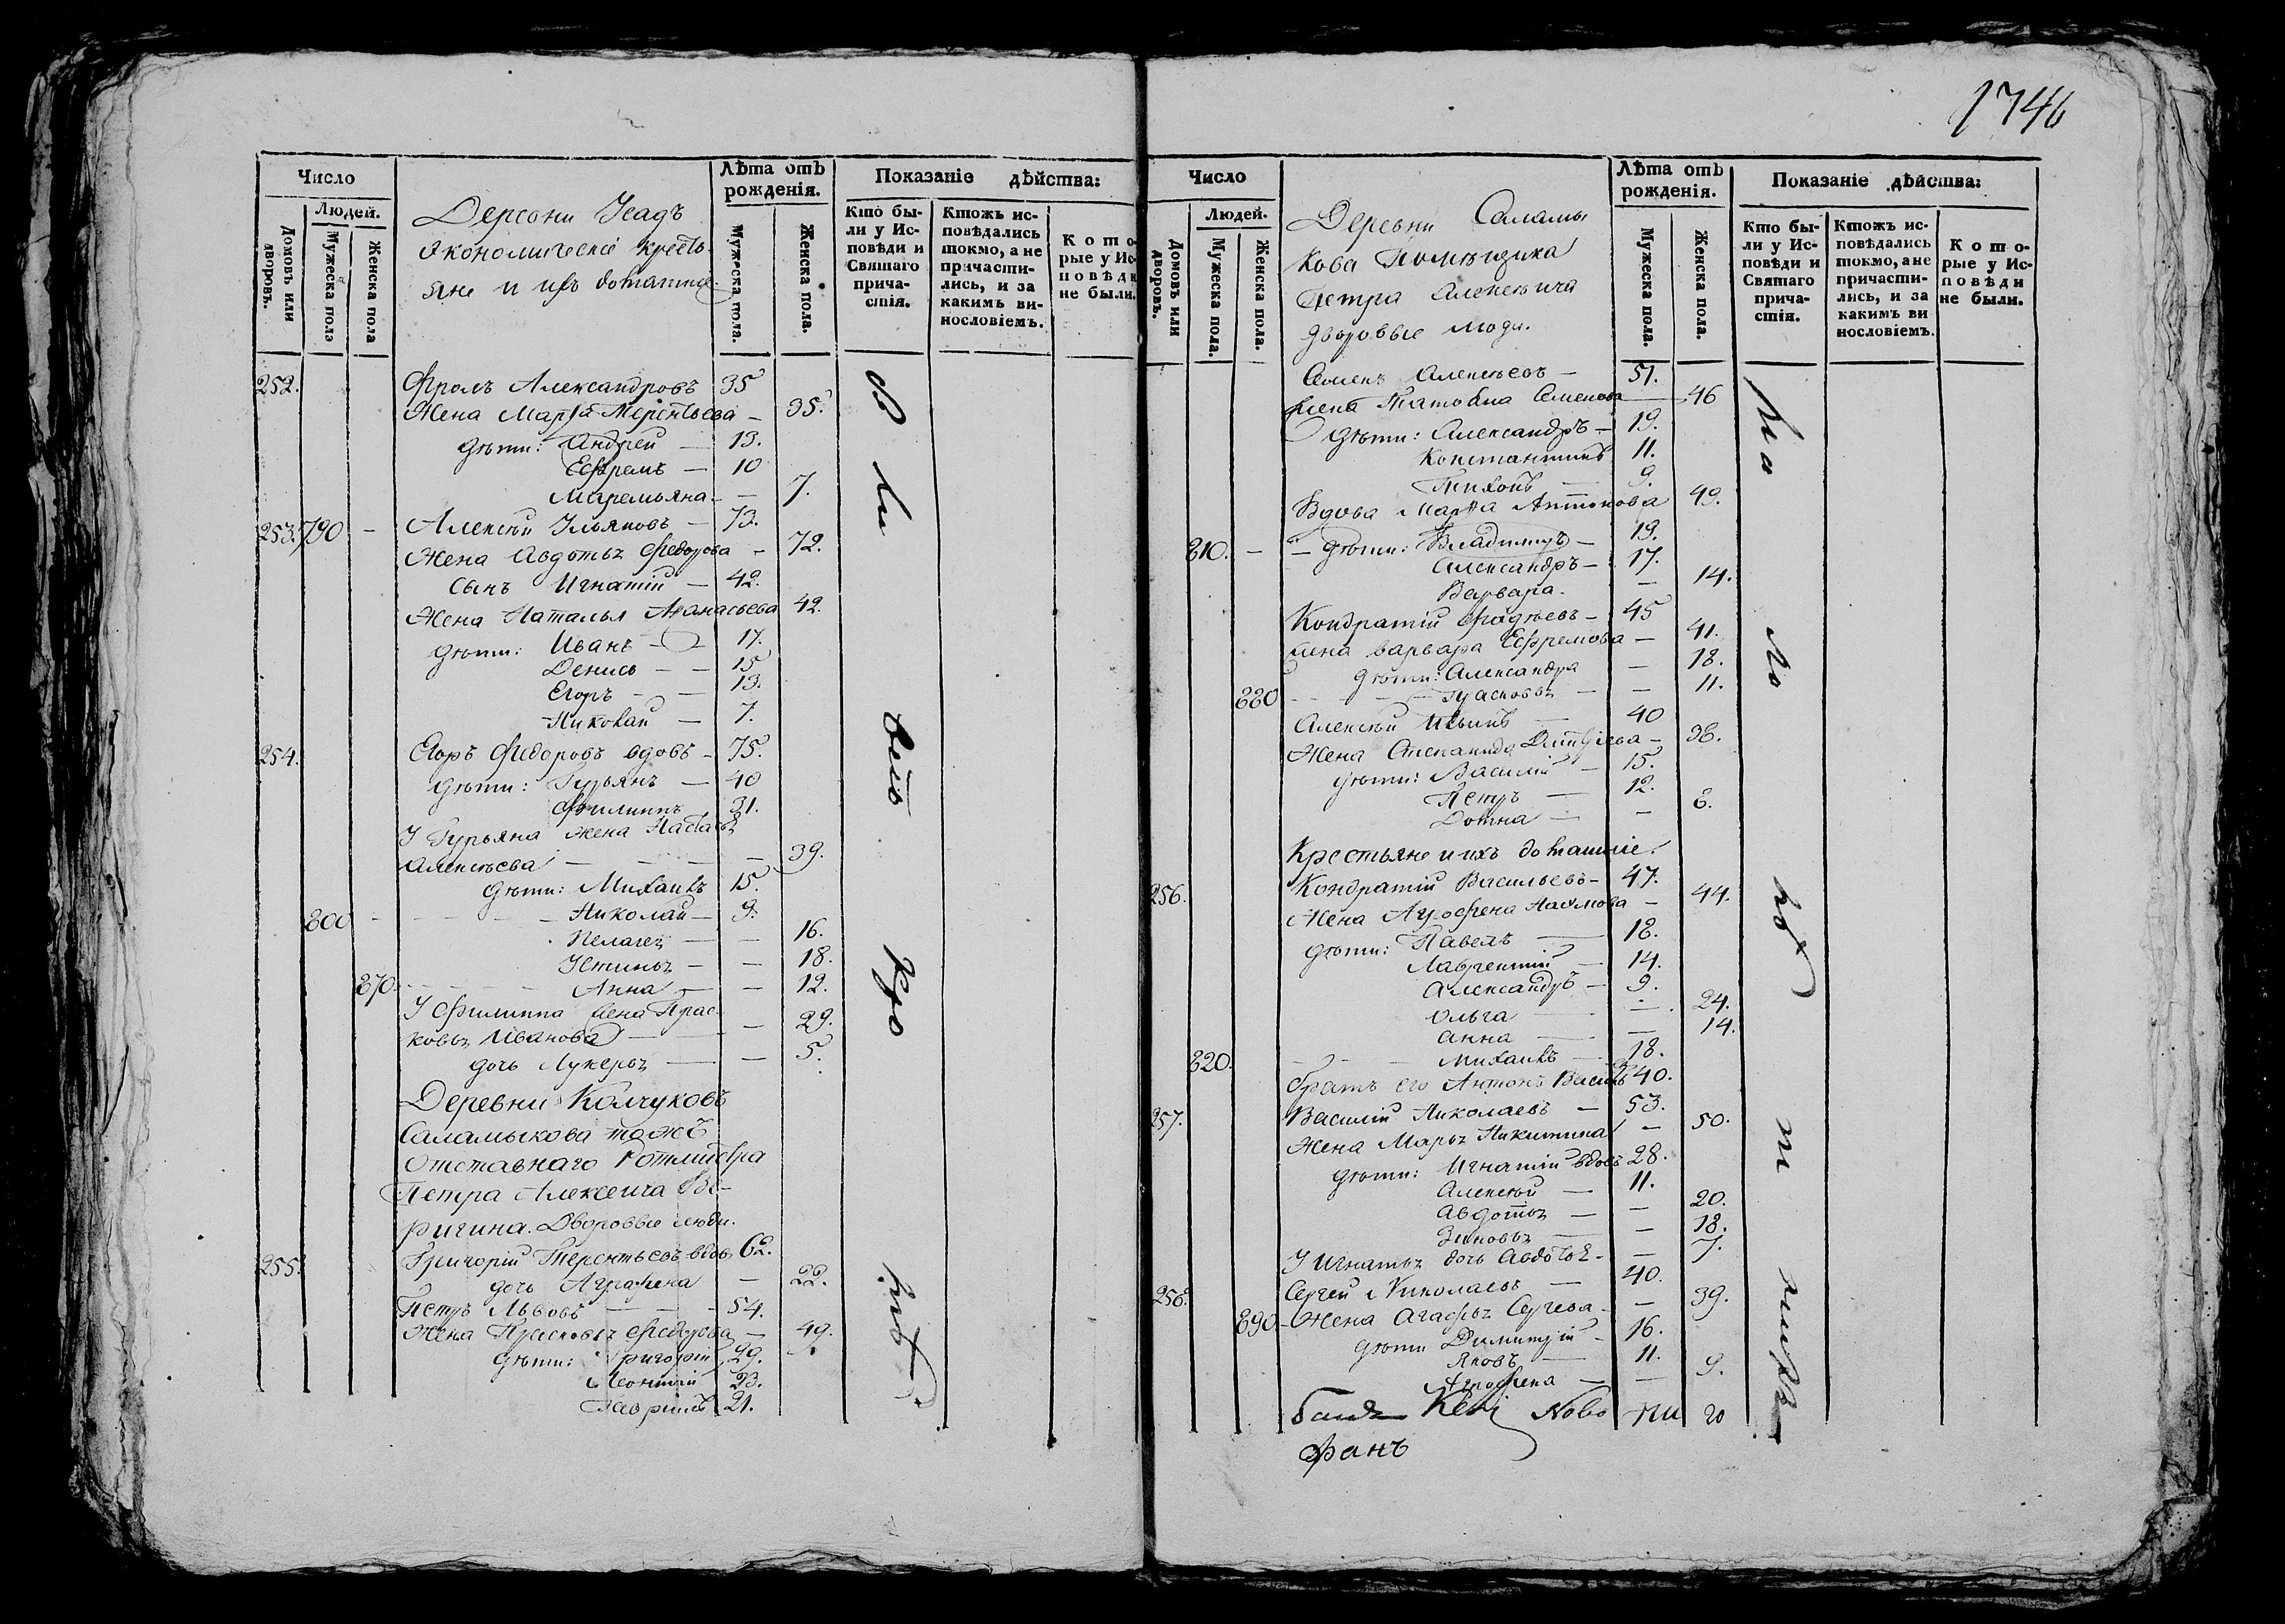 1746
Число
Лѣта отъ рожденія.
Показаніе дѣйства:
Людей.
Домовъ или дворовъ.
Мужеска пола
Женска пола
Мужеска пола.
Женска пола.
Кто бы-
ли у Ис-
повѣди и
Святаго
прича-
стія.
Ктожъ ис-
повѣдались
токмо, а не
причасти-
лись, и за
какимъ ви-
нословіемъ.
Кото-
рые у Ис-
повѣди
не были.
Деревни Усадъ
Экономическіе кресть-
яне и ихъ домашніе.
252. Фролъ Александровъ 35
Жена Марфа Терентьева — 35.
дѣти: Андрей — 13.
Ефремъ — 10
Маремьяна — 7.
253. 790 — Алексѣй Ульяновъ — 73.
Жена Авдотья Федорова — 72.
сынъ Игнатій — 42.
Жена Наталья Афанасьева 42.
дѣти: Иванъ — 17.
Денисъ — — 15
Егоръ — — 13.
Николай — 7.
254. Егоръ Федоровъ вдовъ — 75.
дѣти: Гурьянъ — 40
Филиппъ 31.
У Гурьяна жена Настасья
Алексѣева — — — — 39.
дѣти: Михаилъ 15.
800 — Николай — 9.
Пелагея — — 16.
Устинья — — 18.
870. Анна — — 12.
У Филиппа жена Прас-
ковья Иванова — — 29.
дочь Лукерья — — 5.
Деревни Колчуковъ
Саламыкова тожъ
Отставнаго Ротмистра
Петра Алексеича Ве-
ригина. Дворовые люди.
255. Григорій Терентьевъ вдовъ 62.
дочь Аграфена — 22.
Петръ Львовъ — — — 54.
Жена Прасковья Федорова — 49.
дѣти: Григорій 29.
Леонтій 23.
Гаврилъ 21.
Число
Лѣта отъ рожденія.
Показаніе дѣйства:
Людей.
Домовъ или дворовъ.
Мужеска пола.
Женска пола.
Мужеска пола.
Женска пола.
Кто бы-
ли у Ис-
повѣди и
Святаго
прича-
стія.
Ктожъ ис-
повѣдались
токмо, а не
причасти-
лись, и за
какимъ ви
нословіемъ.
Кото-
рые у Ис-
повѣди
не были.
Деревни Саламы
кова Помѣщика
Петра Алексѣича
дворовые люди.
Семенъ Алексѣевъ — 51.
жена Татьяна Семенова 46
дѣти: Александръ — 19.
Константинъ 11.
Тихонъ — 9.
Вдова Марфа Антонова 49.
810. — дѣти: Владимиръ — 19.
Александръ — 17.
Варвара. — 14.
Кондратій Фадѣевъ — 45
жена варвара Ефремова — 41.
дѣти: Александра — 18.
880 Прасковья — — 11.
Алексѣй Ильинъ — 40
Жена Степанида Дмитріева — 38.
дѣти: Василій — 15.
Петръ — 12.
Домна — — 8.
Крестьяне и ихъ домашніе.
256. Кондратій Васильевъ — 47.
Жена Аграфена Наумова — 44.
дѣти: Павелъ — 18.
Лаврентій — 14.
Александръ — 9.
Ольга — — 24.
анна — — 14.
820. Михаилъ — 18.
братъ его Антонъ Васильевъ 40.
257. Василій Николаевъ — 53.
Жена Марья Никитина — 50.
дѣти: Игнатій вдовъ 28.
Алексѣй — 11.
авдотья — — 20.
Зиновья — — 18.
У Игнатья дочь Авдотья — — 7.
258. Сергей Николаевъ — 40.
890 — Жена Агафья Сергева — — 39.
дѣти Димитрій — 16.
Яковъ — 11.
Аграфена — — 9.
фанъ